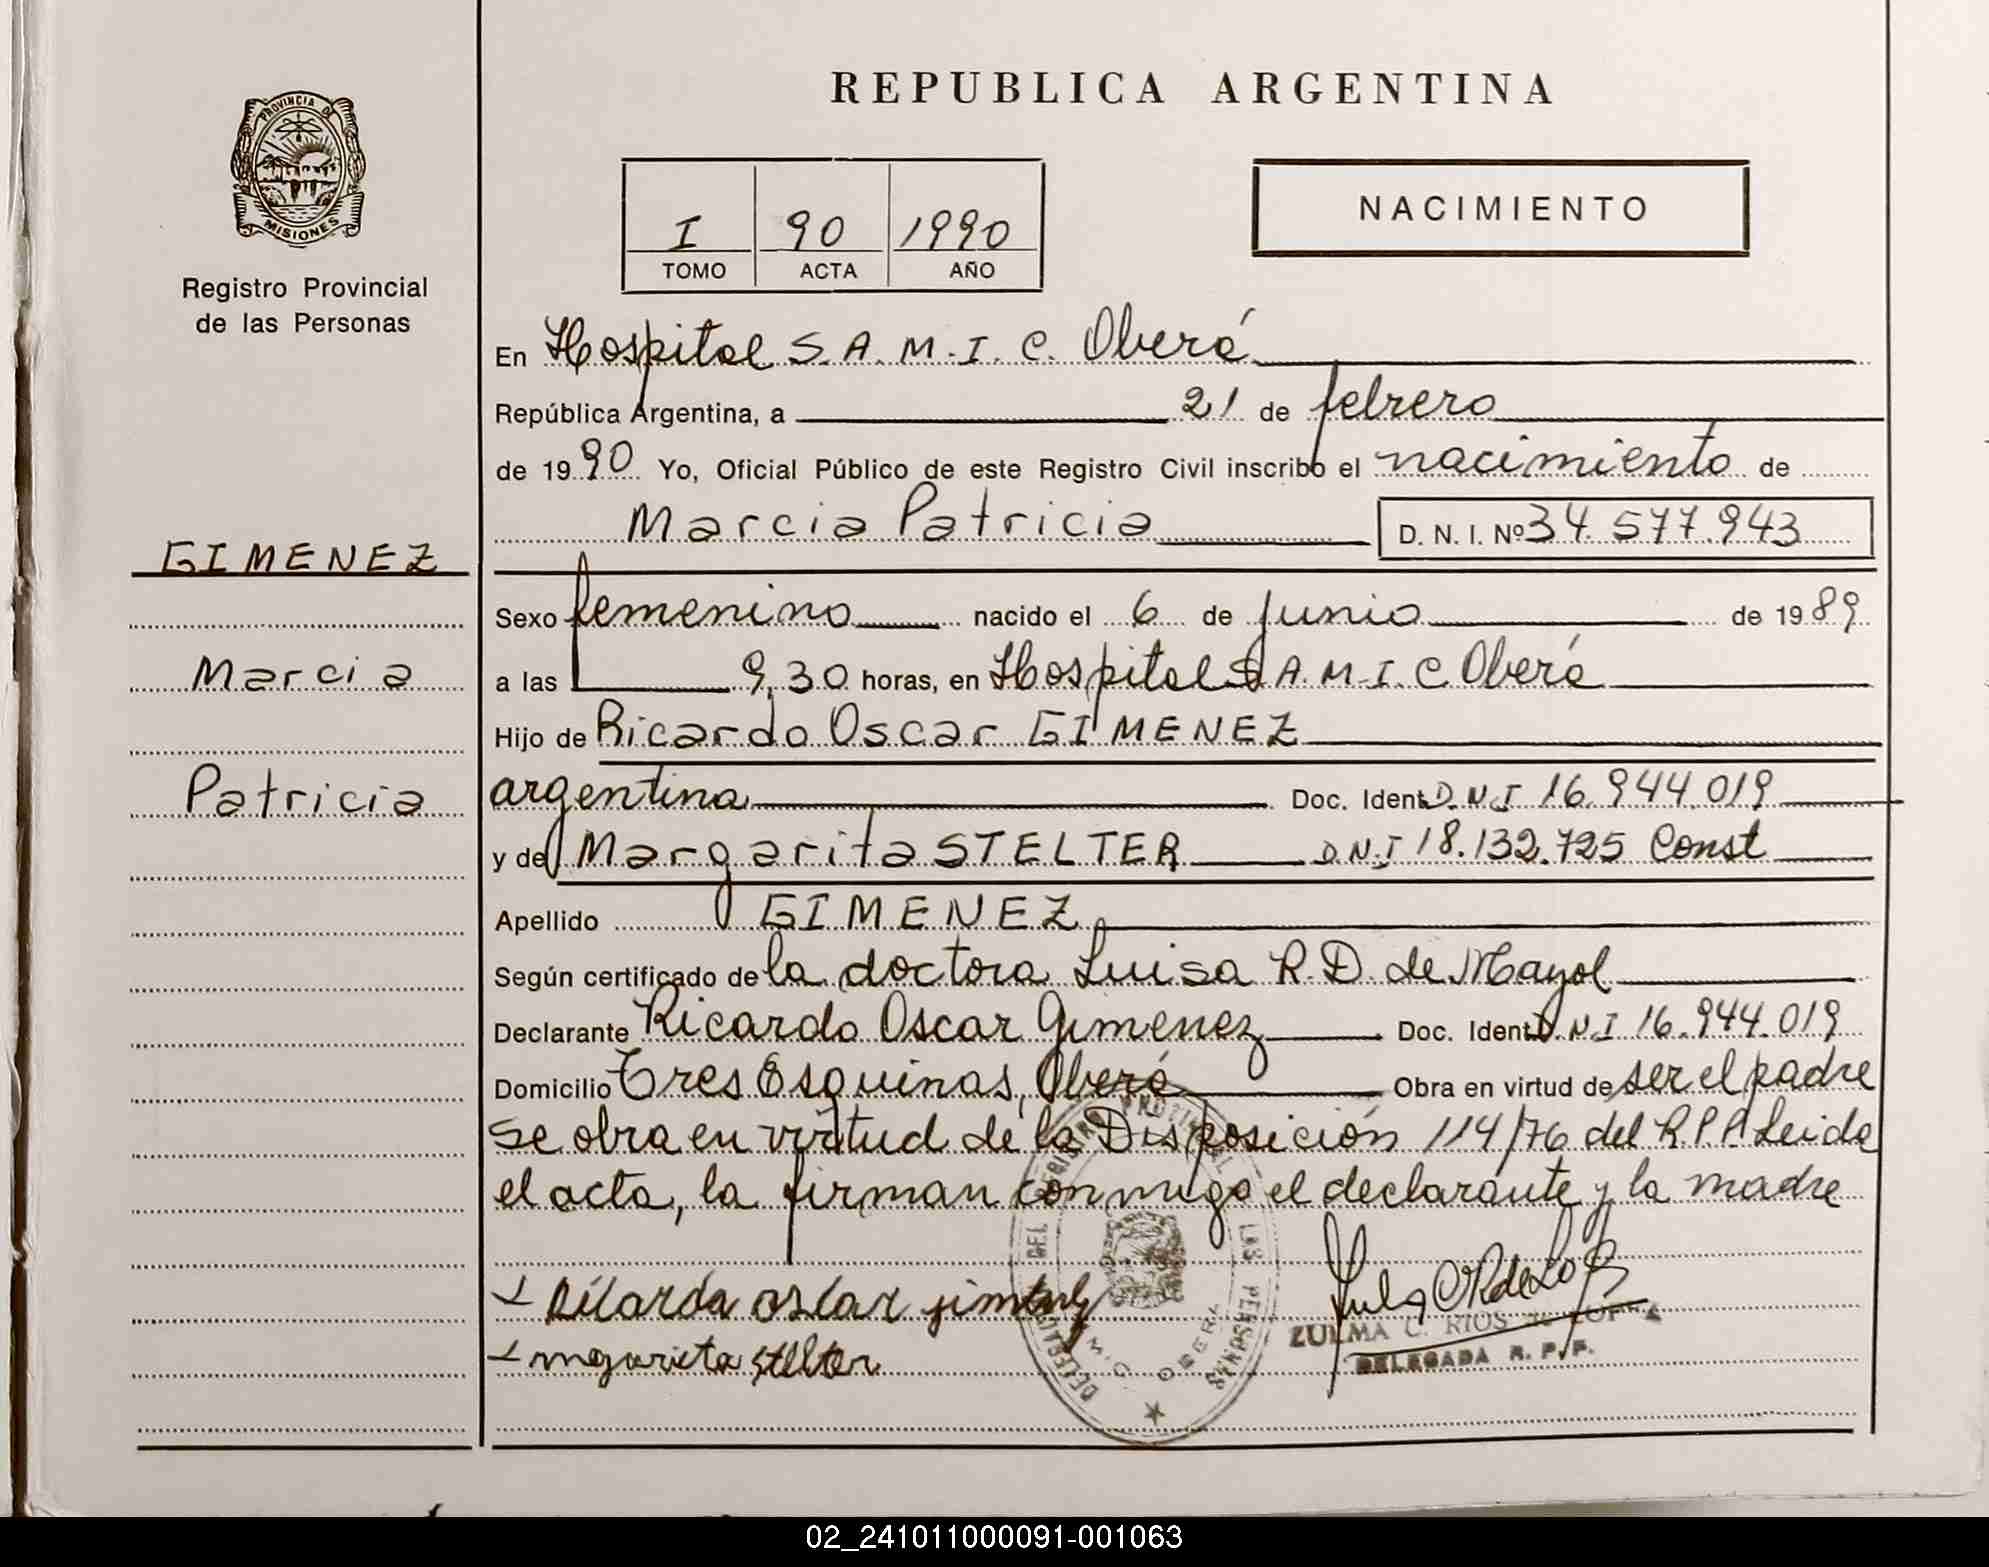 REPUBLICA ARGENTINA
PROVINCIA DE
MISIONES
Registro Provincial
de las Personas
I 90 1990
TOMO ACTA AÑO
NACIMIENTO
En Hospital S.A.M.I.C. Oberá
República Argentina, a 21 de febrero
de 1990 Yo, Oficial Público de este Registro Civil inscribo el nacimiento de
Marcia Patricia D. N. I. Nº 34.577.943
GIMENEZ
Marcia
Patricia
Sexo femenino nacido el 6 de junio de 1989
a las 9,30 horas, en Hospital S.A.M.I.C Oberá
Hijo de Ricardo Oscar GIMENEZ
argentina Doc. Ident. D.N.I 16.944.019
y de Margarita STELTER D.N.I 18.132.725 Const
Apellido GIMENEZ
Según certificado de la doctora Luisa R.D. de Mayol
Declarante Ricardo Oscar Gimenez Doc. Ident. D.N.I 16.944.019
Domicilio Tres Esquinas, Oberá Obra en virtud de ser el padre
se obra en virtud de la Disposición 114/76 del R.P.P. Leida
el acta, la firman conmigo el declarante y la madre
Ricardo oscar jimenez
margarita stelter
ZULMA C. RIOS DE
DELEGADA R. P. P.
DEL REGISTRO PROVINCIAL LAS PERSONAS
OBERA
02_241011000091-001063